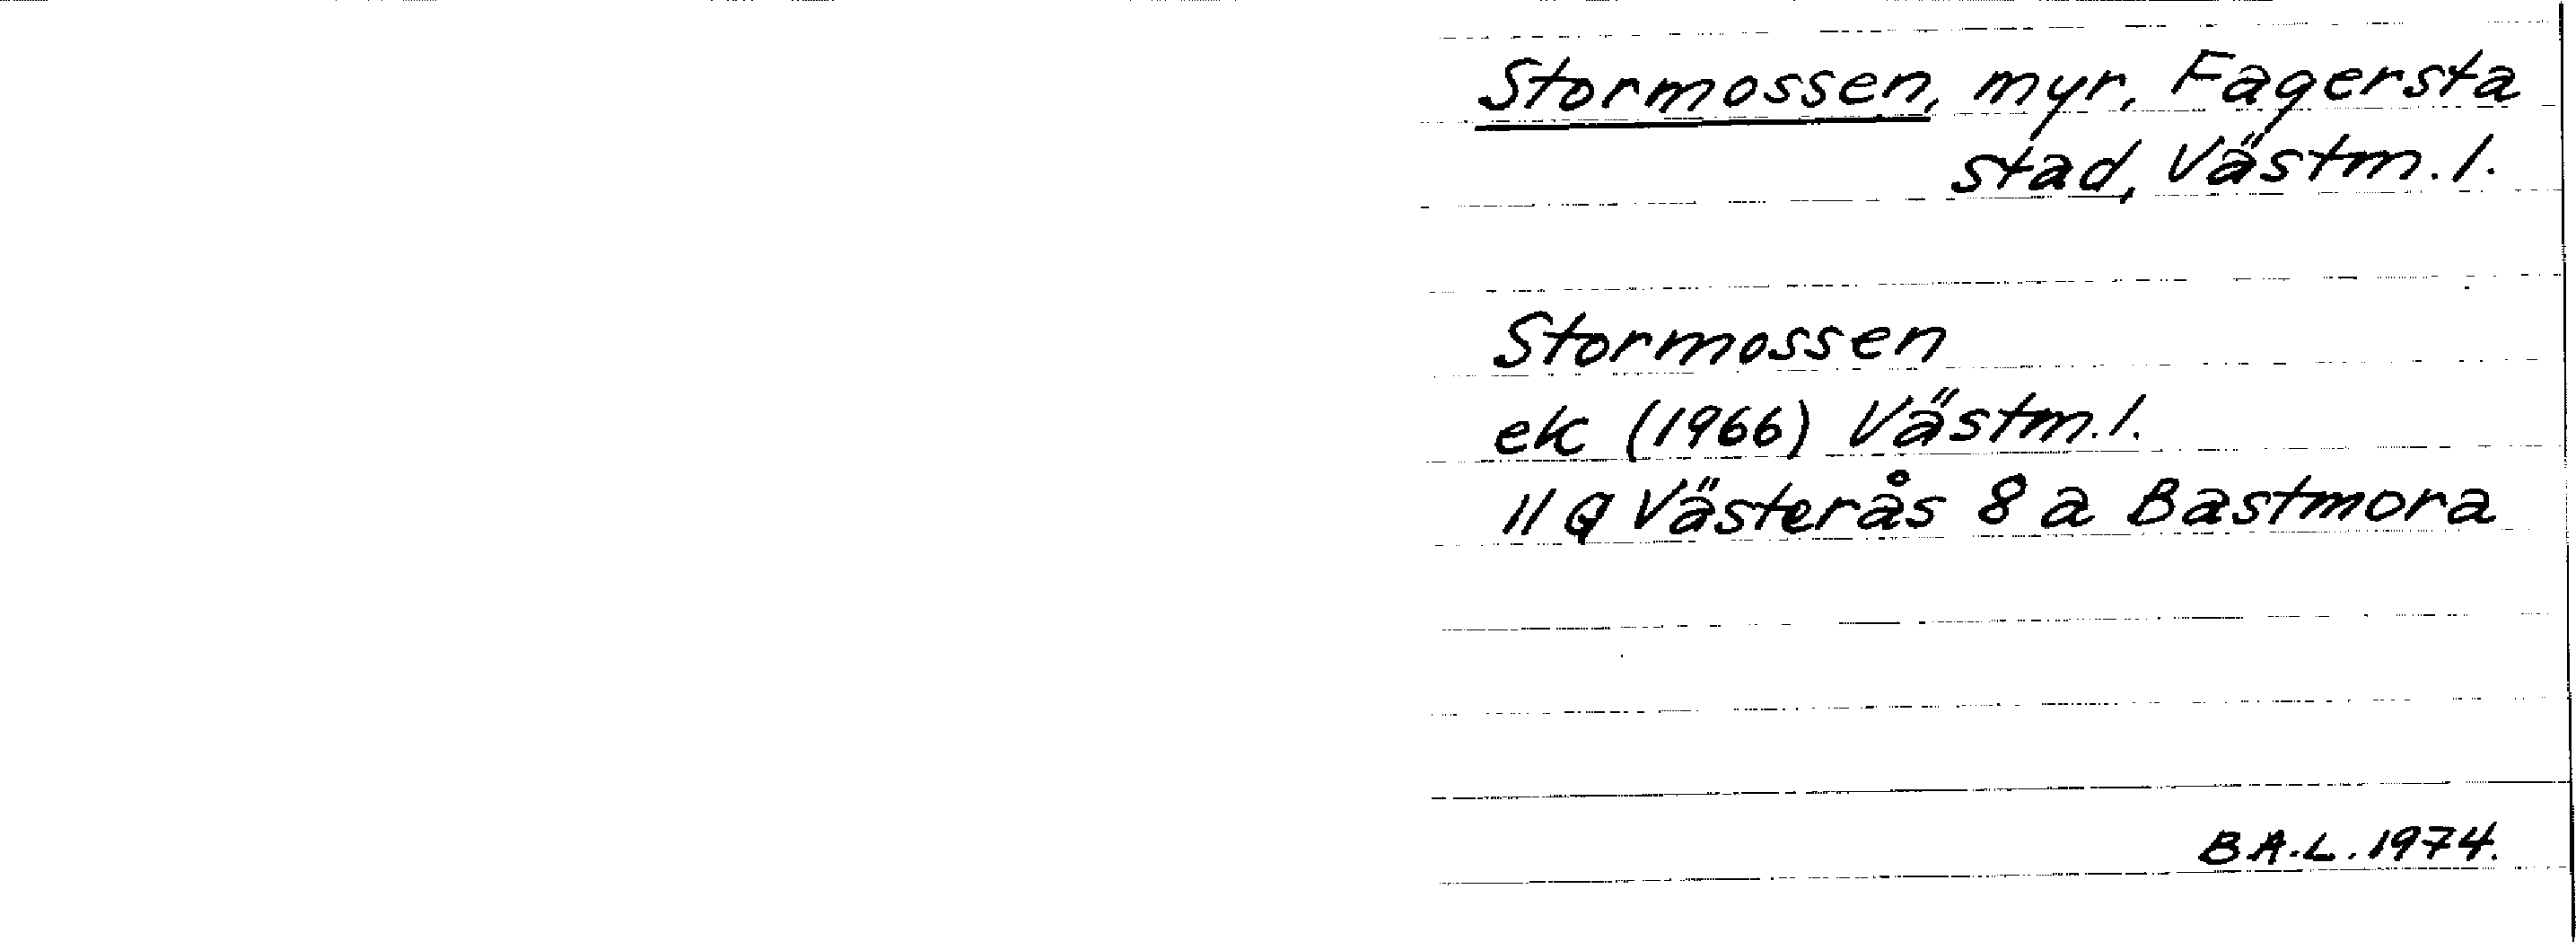 Stormossen, myr, Fagersta
stad, Västm. l.
Stormossen
ek (1966) Västm. l.
11 G Västerås 8 a Bastmora
B A.L. 1974.